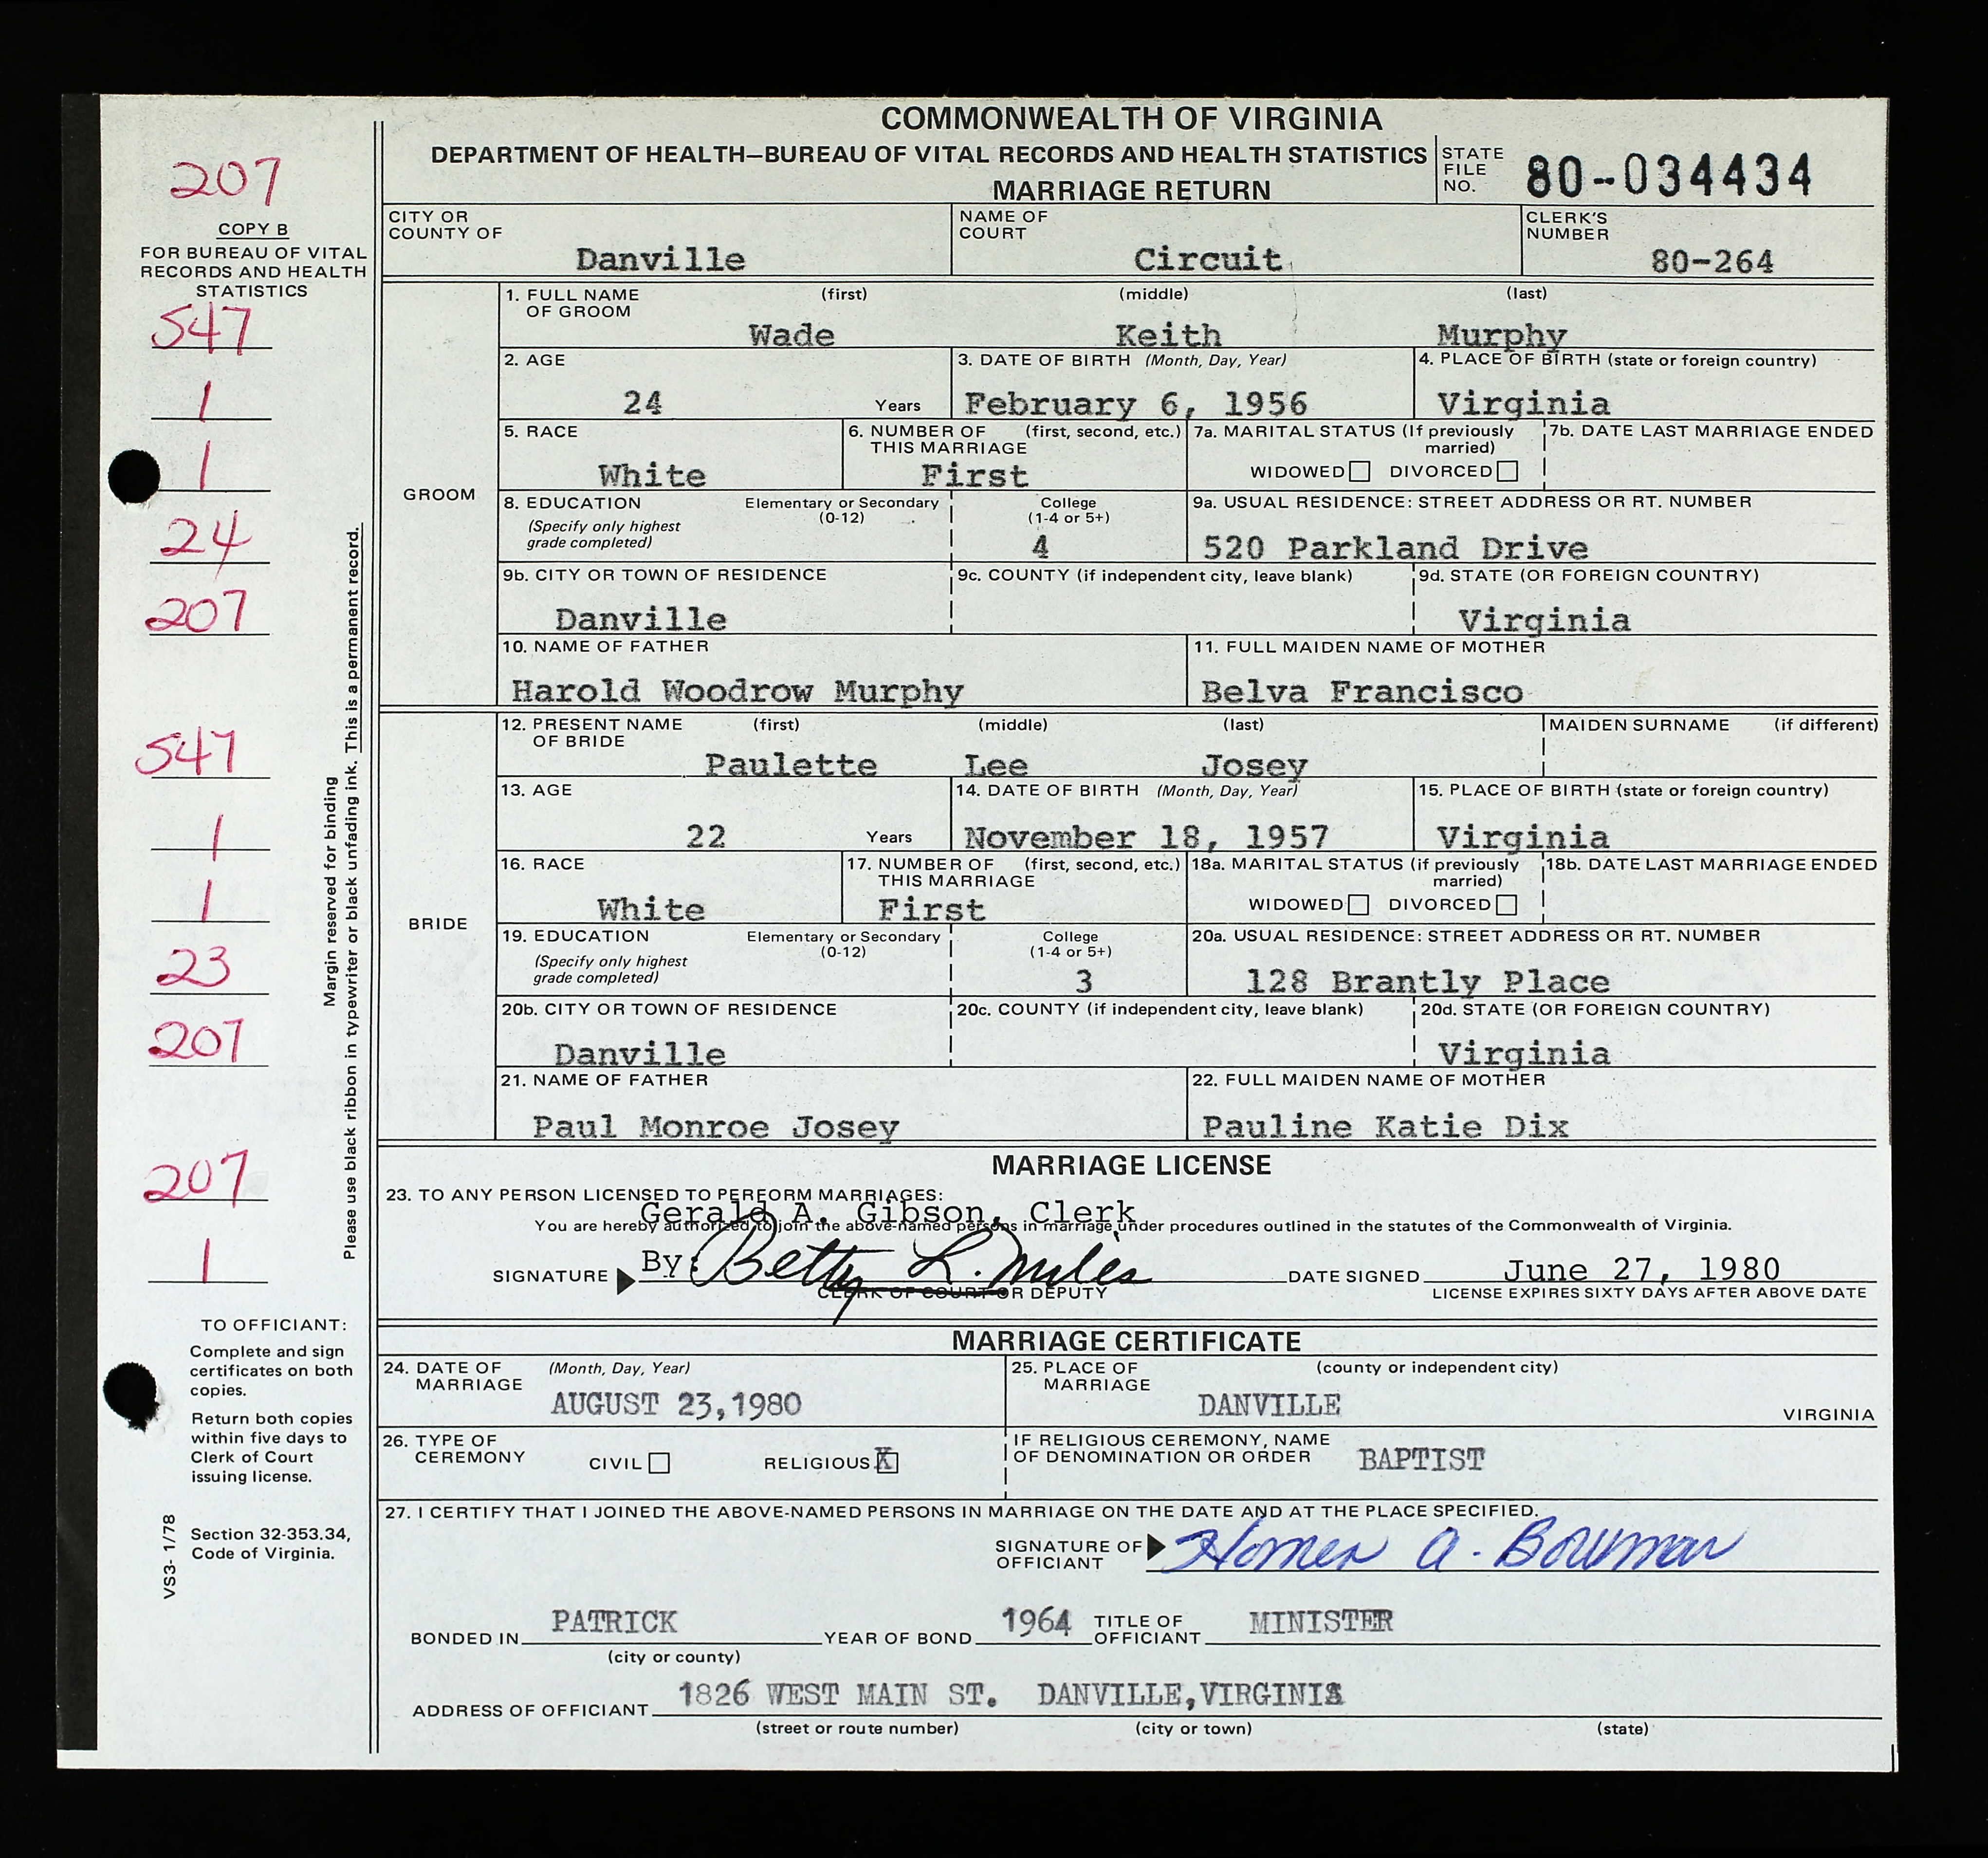 COMMONWEALTH OF VIRGINIA
DEPARTMENT OF HEALTH—BUREAU OF VITAL RECORDS AND HEALTH STATISTICS
MARRIAGE RETURN
STATE FILE NO. 80-034434
207
COPY B
FOR BUREAU OF VITAL
RECORDS AND HEALTH
STATISTICS
547
1
1
24
207
547
1
1
23
207
207
1
Margin reserved for binding
Please use black ribbon in typewriter or black unfading ink. This is a permanent record.
TO OFFICIANT:
Complete and sign
certificates on both
copies.
Return both copies
within five days to
Clerk of Court
issuing license.
Section 32-353.34,
Code of Virginia.
VS3- 1/78
CITY OR COUNTY OF Danville
NAME OF COURT Circuit
CLERK'S NUMBER 80-264
GROOM
1. FULL NAME OF GROOM (first) (middle) (last)
Wade Keith Murphy
2. AGE 24 Years
3. DATE OF BIRTH (Month, Day, Year) February 6, 1956
4. PLACE OF BIRTH (state or foreign country) Virginia
5. RACE White
6. NUMBER OF THIS MARRIAGE (first, second, etc.) First
7a. MARITAL STATUS (If previously married) WIDOWED DIVORCED
7b. DATE LAST MARRIAGE ENDED
8. EDUCATION (Specify only highest grade completed) Elementary or Secondary (0-12) College (1-4 or 5+) 4
9a. USUAL RESIDENCE: STREET ADDRESS OR RT. NUMBER 520 Parkland Drive
9b. CITY OR TOWN OF RESIDENCE Danville
9c. COUNTY (if independent city, leave blank)
9d. STATE (OR FOREIGN COUNTRY) Virginia
10. NAME OF FATHER Harold Woodrow Murphy
11. FULL MAIDEN NAME OF MOTHER Belva Francisco
BRIDE
12. PRESENT NAME OF BRIDE (first) (middle) (last) MAIDEN SURNAME (if different)
Paulette Lee Josey
13. AGE 22 Years
14. DATE OF BIRTH (Month, Day, Year) November 18, 1957
15. PLACE OF BIRTH (state or foreign country) Virginia
16. RACE White
17. NUMBER OF THIS MARRIAGE (first, second, etc.) First
18a. MARITAL STATUS (if previously married) WIDOWED DIVORCED
18b. DATE LAST MARRIAGE ENDED
19. EDUCATION (Specify only highest grade completed) Elementary or Secondary (0-12) College (1-4 or 5+) 3
20a. USUAL RESIDENCE: STREET ADDRESS OR RT. NUMBER 128 Brantly Place
20b. CITY OR TOWN OF RESIDENCE Danville
20c. COUNTY (if independent city, leave blank)
20d. STATE (OR FOREIGN COUNTRY) Virginia
21. NAME OF FATHER Paul Monroe Josey
22. FULL MAIDEN NAME OF MOTHER Pauline Katie Dix
MARRIAGE LICENSE
23. TO ANY PERSON LICENSED TO PERFORM MARRIAGES:
Gerald A. Gibson, Clerk
You are hereby authorized to join the above-named persons in marriage under procedures outlined in the statutes of the Commonwealth of Virginia.
SIGNATURE By: Betty L. Miles DATE SIGNED June 27, 1980
CLERK OF COURT OR DEPUTY LICENSE EXPIRES SIXTY DAYS AFTER ABOVE DATE
MARRIAGE CERTIFICATE
24. DATE OF MARRIAGE (Month, Day, Year) AUGUST 23,1980
25. PLACE OF MARRIAGE (county or independent city) DANVILLE VIRGINIA
26. TYPE OF CEREMONY CIVIL RELIGIOUS X
IF RELIGIOUS CEREMONY, NAME OF DENOMINATION OR ORDER BAPTIST
27. I CERTIFY THAT I JOINED THE ABOVE-NAMED PERSONS IN MARRIAGE ON THE DATE AND AT THE PLACE SPECIFIED.
SIGNATURE OF OFFICIANT Homer A. Bowman
BONDED IN PATRICK YEAR OF BOND 1964 TITLE OF OFFICIANT MINISTER
(city or county)
ADDRESS OF OFFICIANT 1826 WEST MAIN ST. DANVILLE,VIRGINIA
(street or route number) (city or town) (state)